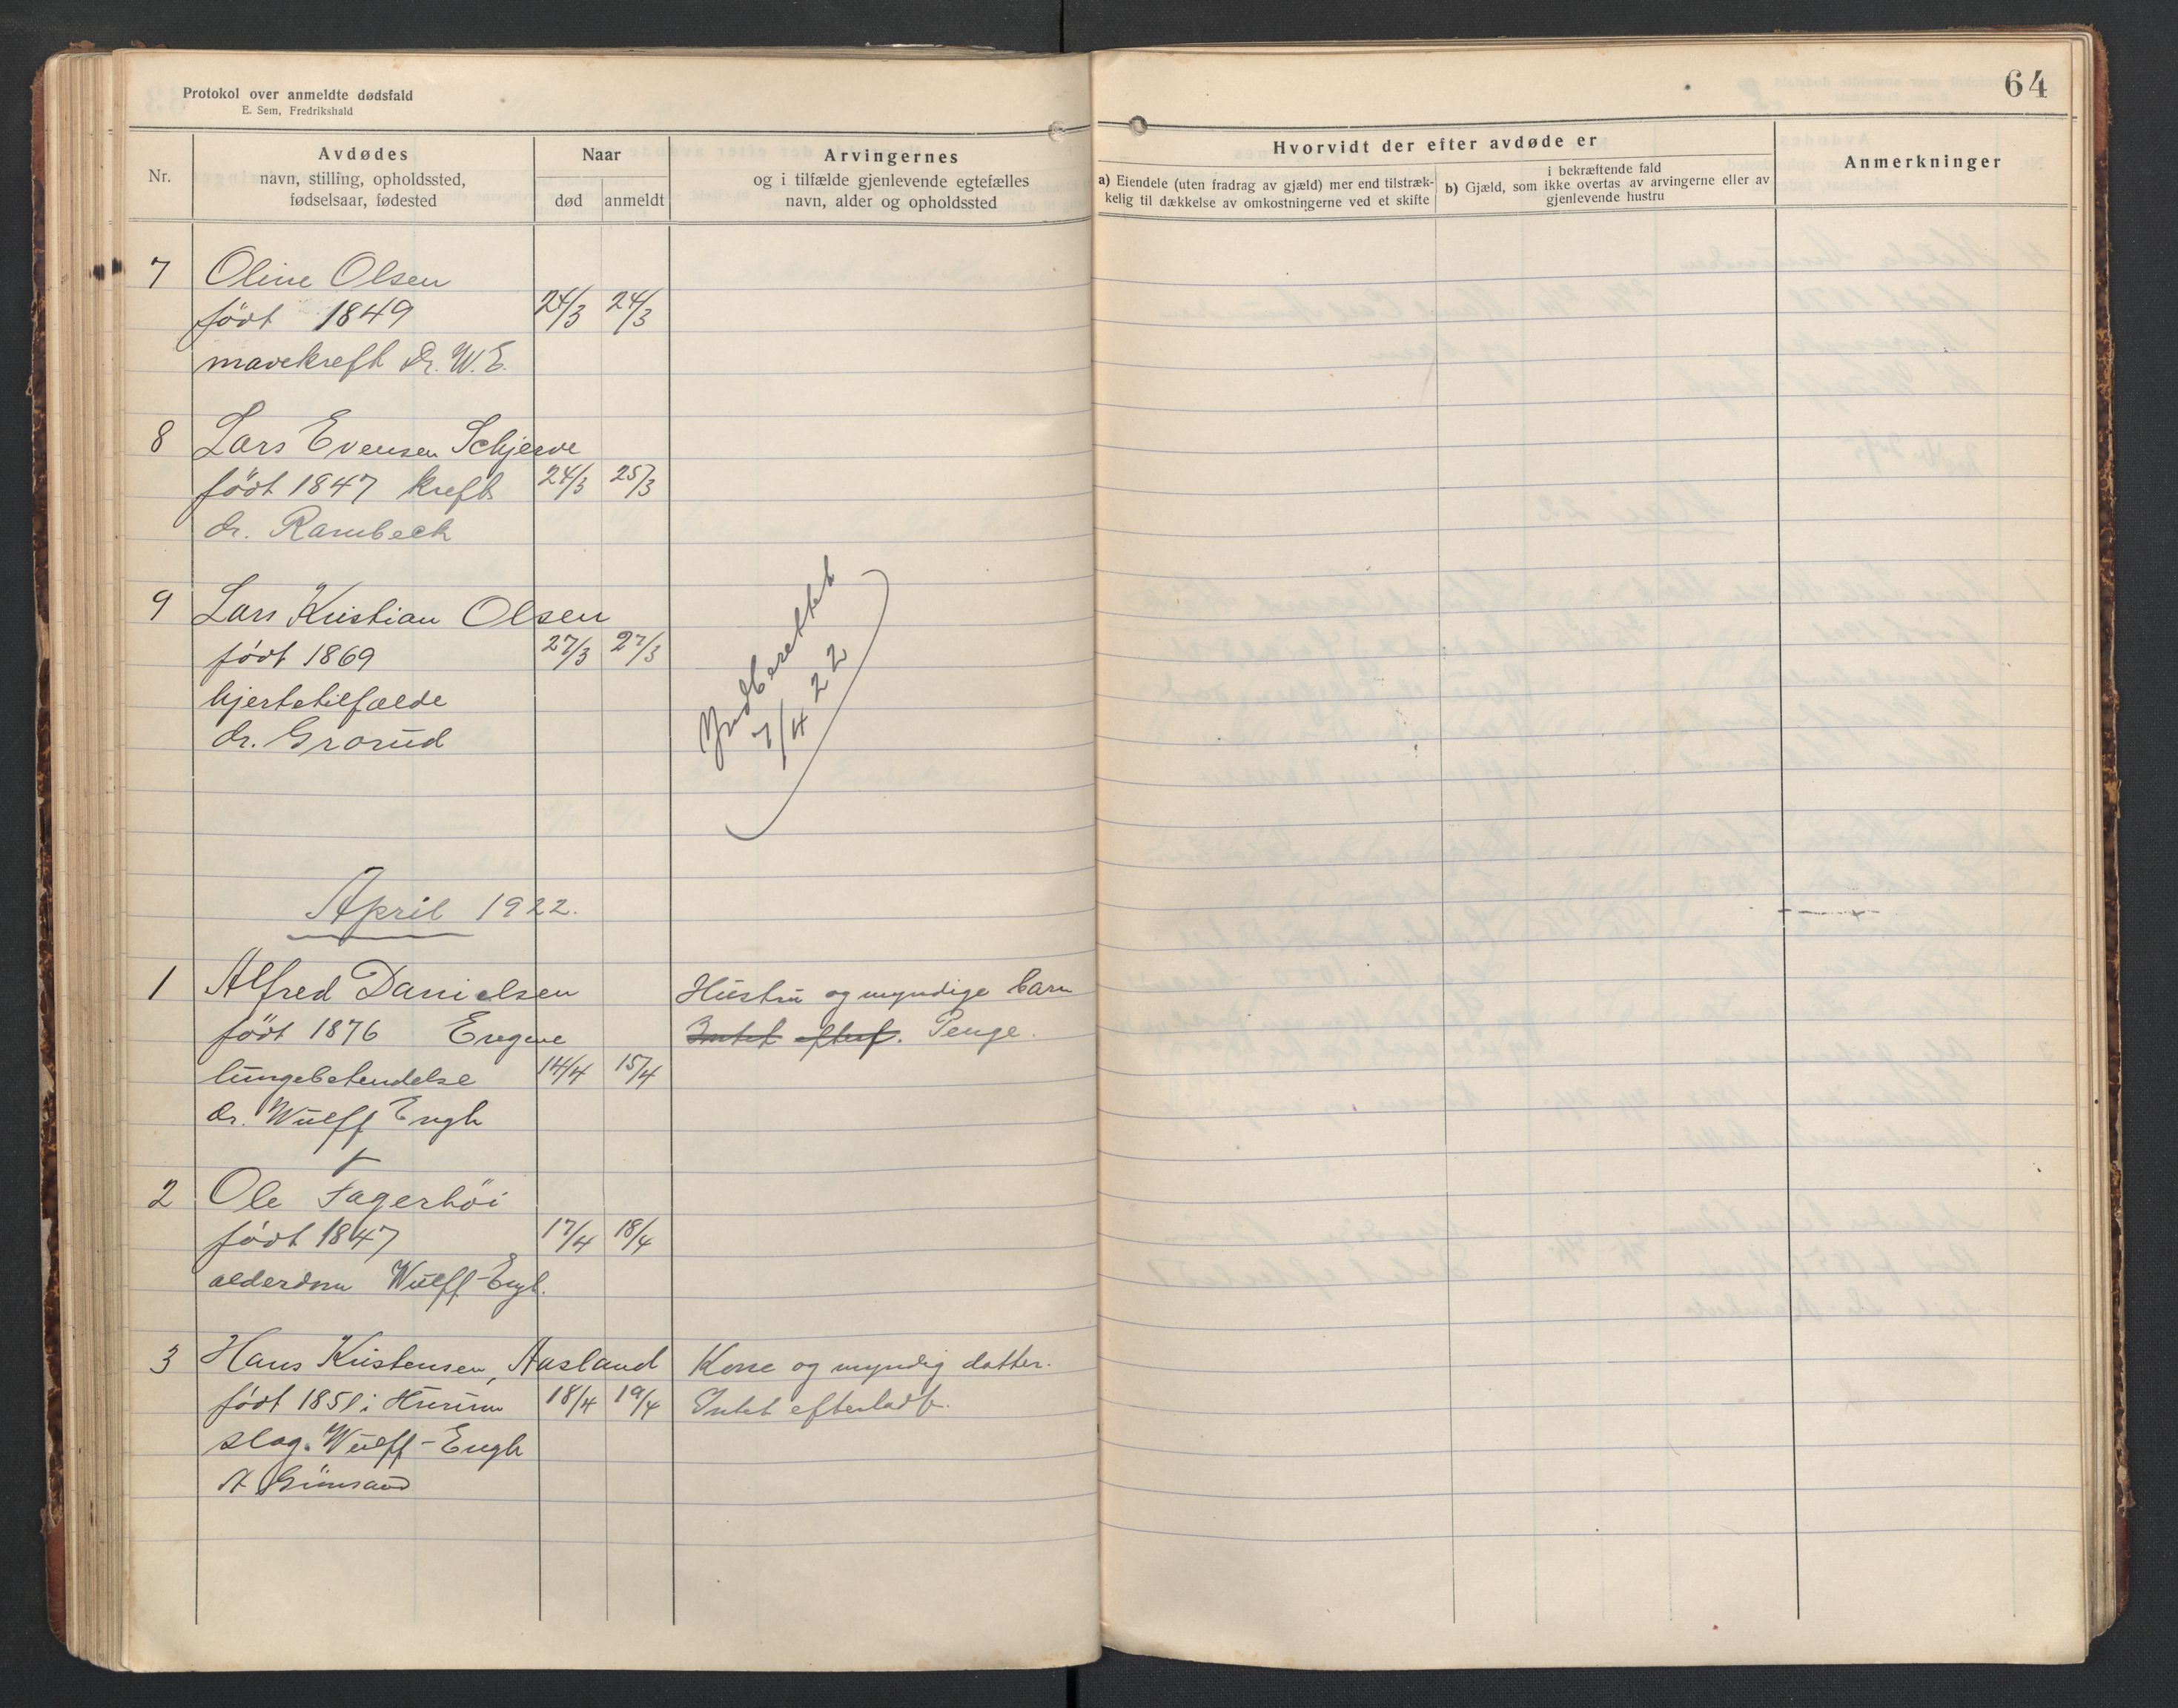 Protokol over anmeldte dødsfald
E. Sem, Fredrikshald
64
Nr.
Avdødes
navn, stilling, opholdssted,
fødselsaar, fødested
Naar
død
anmeldt
Arvingernes
og i tilfælde gjenlevende egtefælles
navn, alder og opholdssted
Hvorvidt der efter avdøde er
a) Eiendele (uten fradrag av gjæld) mer end tilstræk-
kelig til dækkelse av omkostningerne ved et skifte
i bekræftende fald
b) Gjæld, som ikke overtas av arvingerne eller av
gjenlevende hustru
Anmerkninger
7 Oline Olsen
født 1849 24/3 24/3
mavekreft Dr. W. E.
8 Lars Evensen Schjerve
født 1847 kreft 24/3 25/3
dr. Rambeck
9 Lars Kristian Olsen
født 1869 27/3 27/3
hjertetilfælde
dr. Grorud
Indberettet
7/4 22
April 1922.
1 Alfred Danielsen Hustru og myndige barn
født 1876 Engene Intet efterl. Penge.
lungebetendelse 14/4 15/4
dr. Wulff Engh
2 Ole Fagerhöi
født 1847 17/4 18/4
alderdom Wulff-Engh.
3 Hans Kristensen, Aasland Kone og myndig datter.
født 1851 i Hurum 18/4 19/4 Intet efterladt.
slag. Wulff-Engh